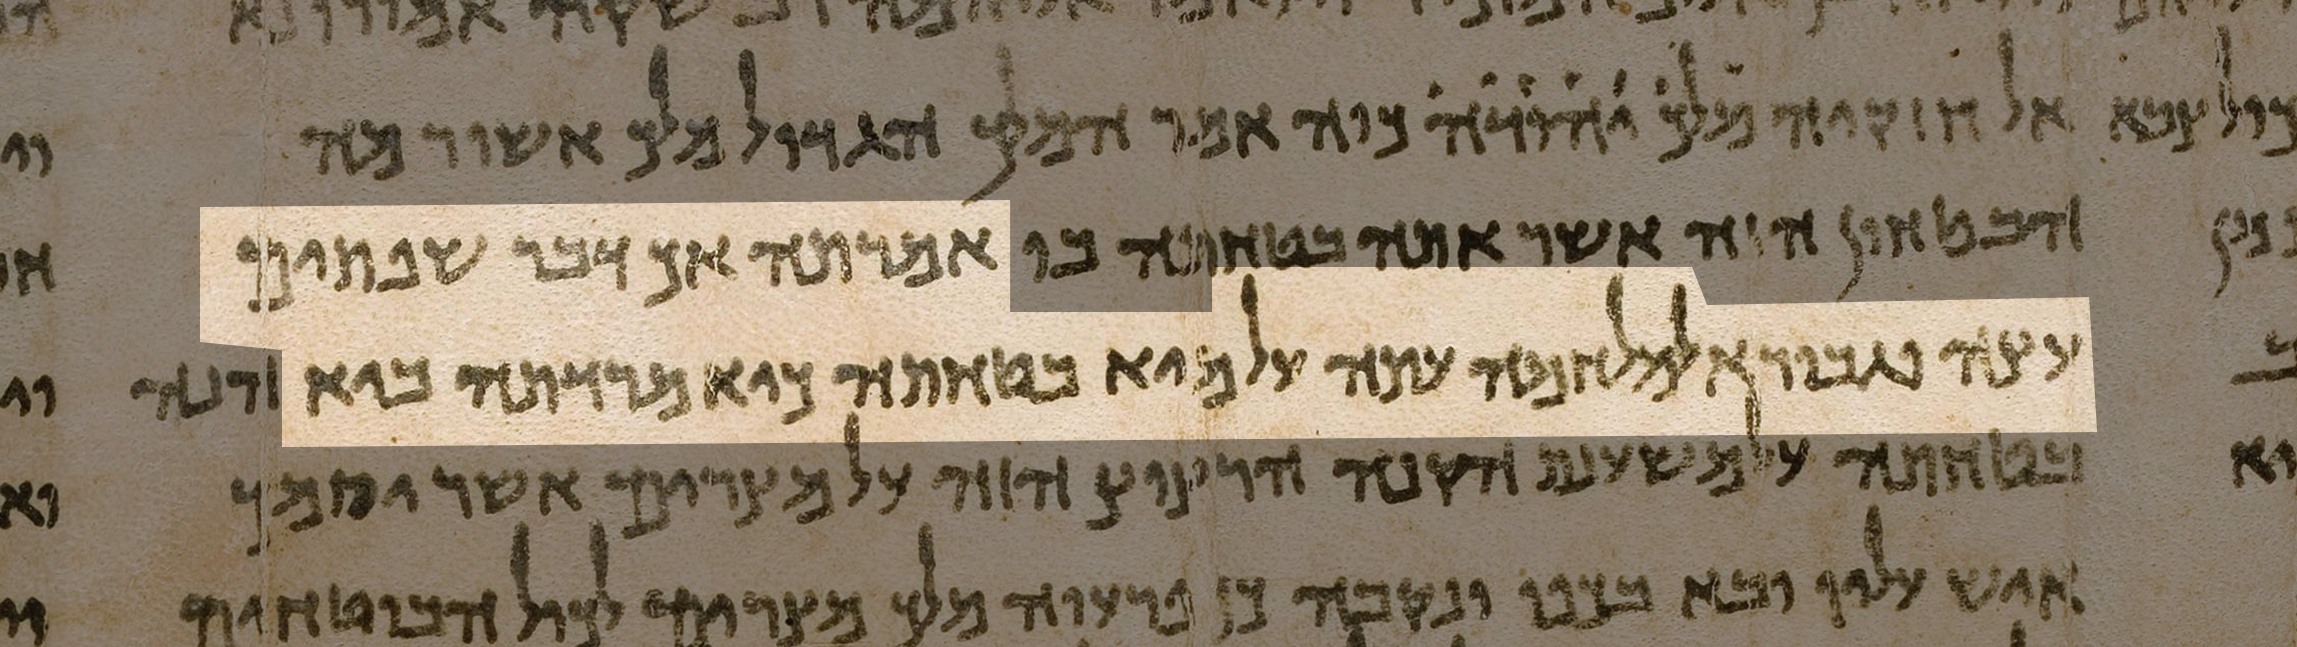 שקה אמורו נא
אל חזקיה מלך יהודה כוה אמר המלך הגדול מלך אשור מה
הבטחון הזה אשר אתה בטחתה בו אמרתה אך דבר שפתים
עצה וגבורא למלחמה עתה על מיא בטחתה כיא מרדתה ביא הנה
בטחתה על משענת הקנה הרצוץ הזה על מצרים אשר יסמך
איש עליו ובא בכפו ונקבה כן פרעוה מלך מצרים לכול הבוטחים